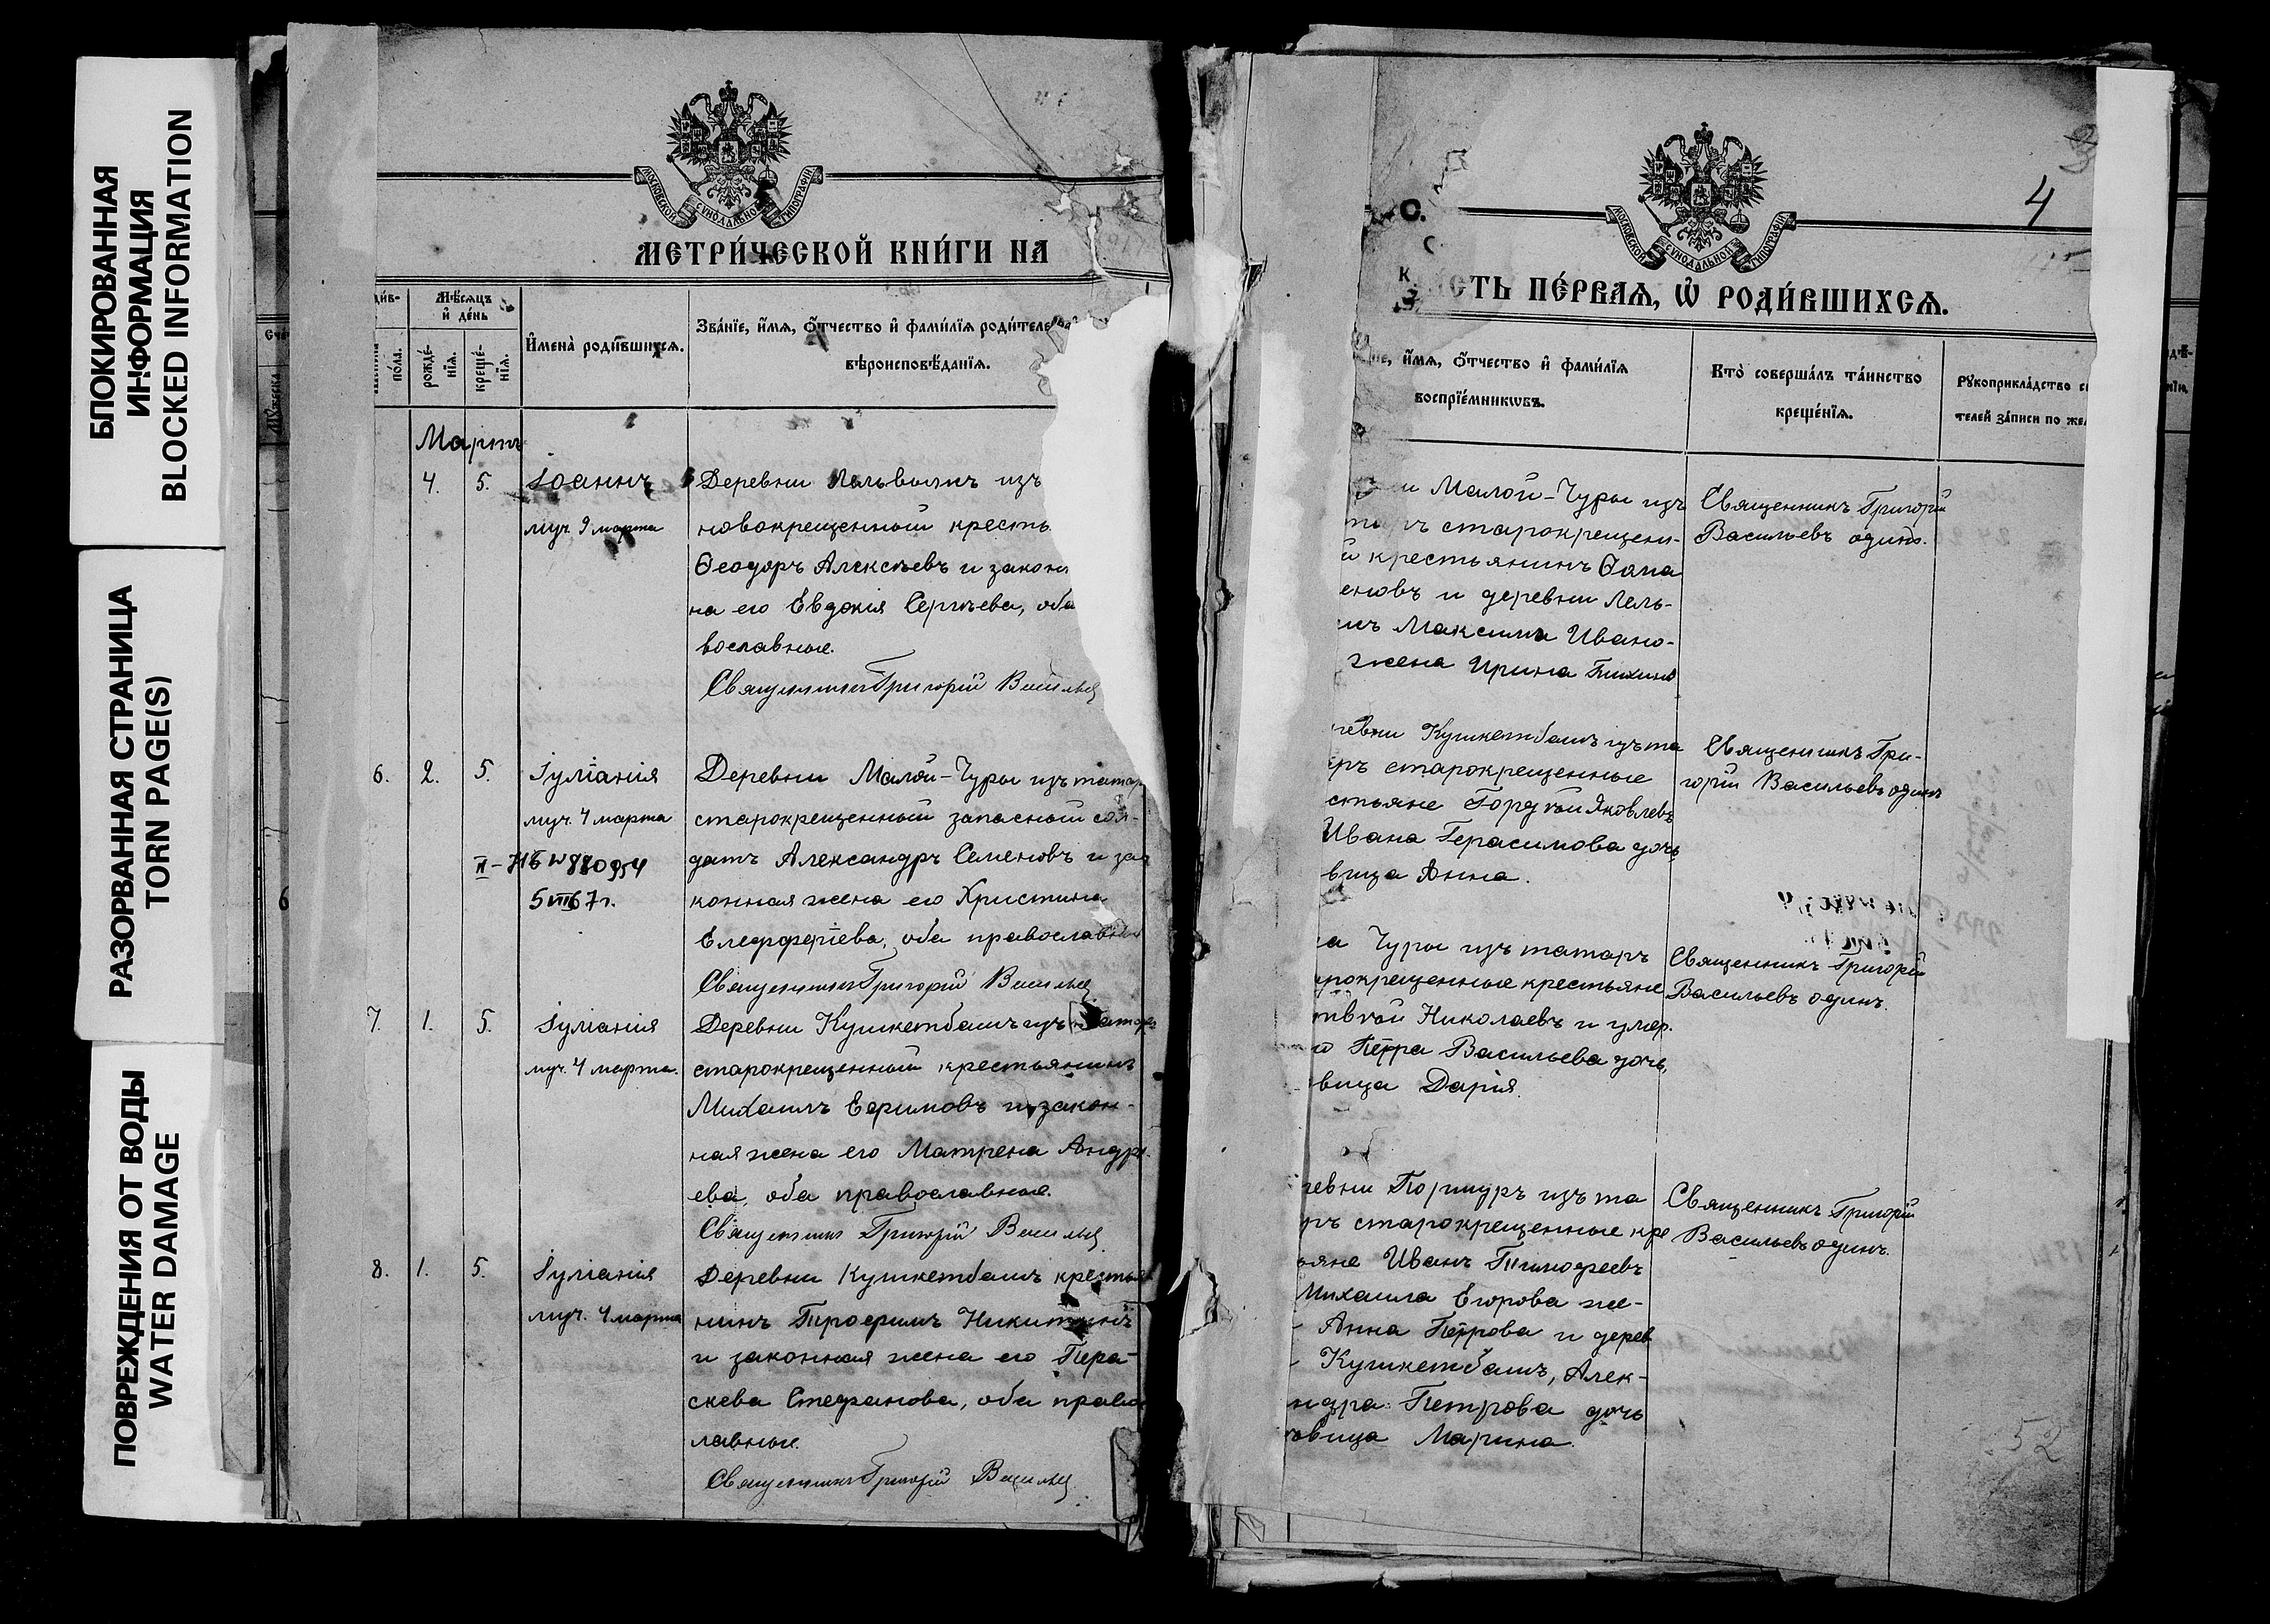 БЛОКИРОВАННАЯ
ИНФОРМАЦИЯ
BLOCKED INFORMATION
РАЗОРВАННАЯ СТРАНИЦА
TORN PAGE(S)
ПОВРЕЖДЕНИЯ ОТ ВОДЫ
WATER DAMAGE
МОСКОВСКОЙ СѴНОДАЛЬНОЙ ТИПОГРАФІИ
МЕТРИ́ЧЕСКОЙ КНИ́ГИ НА
Мѣ́сяцъ
и҆ де́нь
по́ла.
рожде́-
нїѧ.
креще́-
нїѧ.
И҆мена̀ роди́вшихсѧ.
Зва́нїе, и҆́мѧ, ѻ҆́тчество и҆ фами́лїѧ роди́теле
вѣроисповѣ́данїѧ.
Мартъ
4. 5. Іоаннъ Деревни изъ
муч. 9 марта новокрещенный кресть
Ѳеодоръ Алексѣевъ и закон
на его Евдокія Сергѣева, оба
вославные.
Священникъ Григорій Васильев
6. 2. 5. Іуліанія Деревни Малой-Чуры изъ татар
муч. 4 марта старокрещенный запасный сол-
II-АБ № 880954 датъ Александръ Семеновъ и за
5 VIII 67 г. конная жена его Христина
Елефферіева, оба православные
Священникъ Григорій Васильев
7. 1. 5. Іуліанія Деревни Кушкетбашъ изъ татаръ
муч. 4 марта. старокрещенный крестьянинъ
Михаилъ Ефимовъ и закон-
ная жена его Матрена Андре-
ева, оба православные.
Священникъ Григорій Васильев
8. 1. 5. Іуліанія Деревни Кушкетбашъ крестья
муч. 4 марта нинъ Трофимъ Никитинъ
и законная жена его Пара-
скева Стефанова, оба право
лавные.
Священникъ Григорій Васильев
4
МОСКОВСКОЙ СѴНОДАЛЬНОЙ ТИПОГРАФІИ
СТЬ ПЕ́РВАѦ, Ѽ РОДИ́ВШИХСѦ.
и҆́мѧ, ѻ҆́тчество и҆ фами́лїѧ
воспрїе́мникѡвъ.
Кто̀ соверша́лъ та́инство
креще́нїѧ.
Рꙋкоприкла́дство с
телей за́писи по же
и Малой-Чуры изъ
ъ старокрещен-
й крестьянинъ Ѳома
еновъ и деревни Лель-
Максима Ивано-
жена Ирина Тихино
Священникъ Григорій
Васильевъ одинъ.
ревни Кушкетбашъ изъ та
ръ старокрещенные
стьяне Гордѣй Яковлевъ
Ивана Герасимова дочь
вица Анна.
Священникъ Гри-
горій Васильевъ одинъ
а Чуры изъ татаръ
рокрещенные крестьяне
твѣй Николаевъ и умер.
о Петра Васильева дочь,
вица Дарія.
Священникъ Григорій
Васильевъ одинъ.
ревни Поршуръ изъ та
ръ старокрещенные кре
ьяне Иванъ Тимофеевъ
Михаила Егорова же-
Анна Петрова и дерев
Кушкетбашъ, Алек-
ндра Петрова дочь
вица Марина.
Священникъ Григорій
Васильевъ одинъ.
52